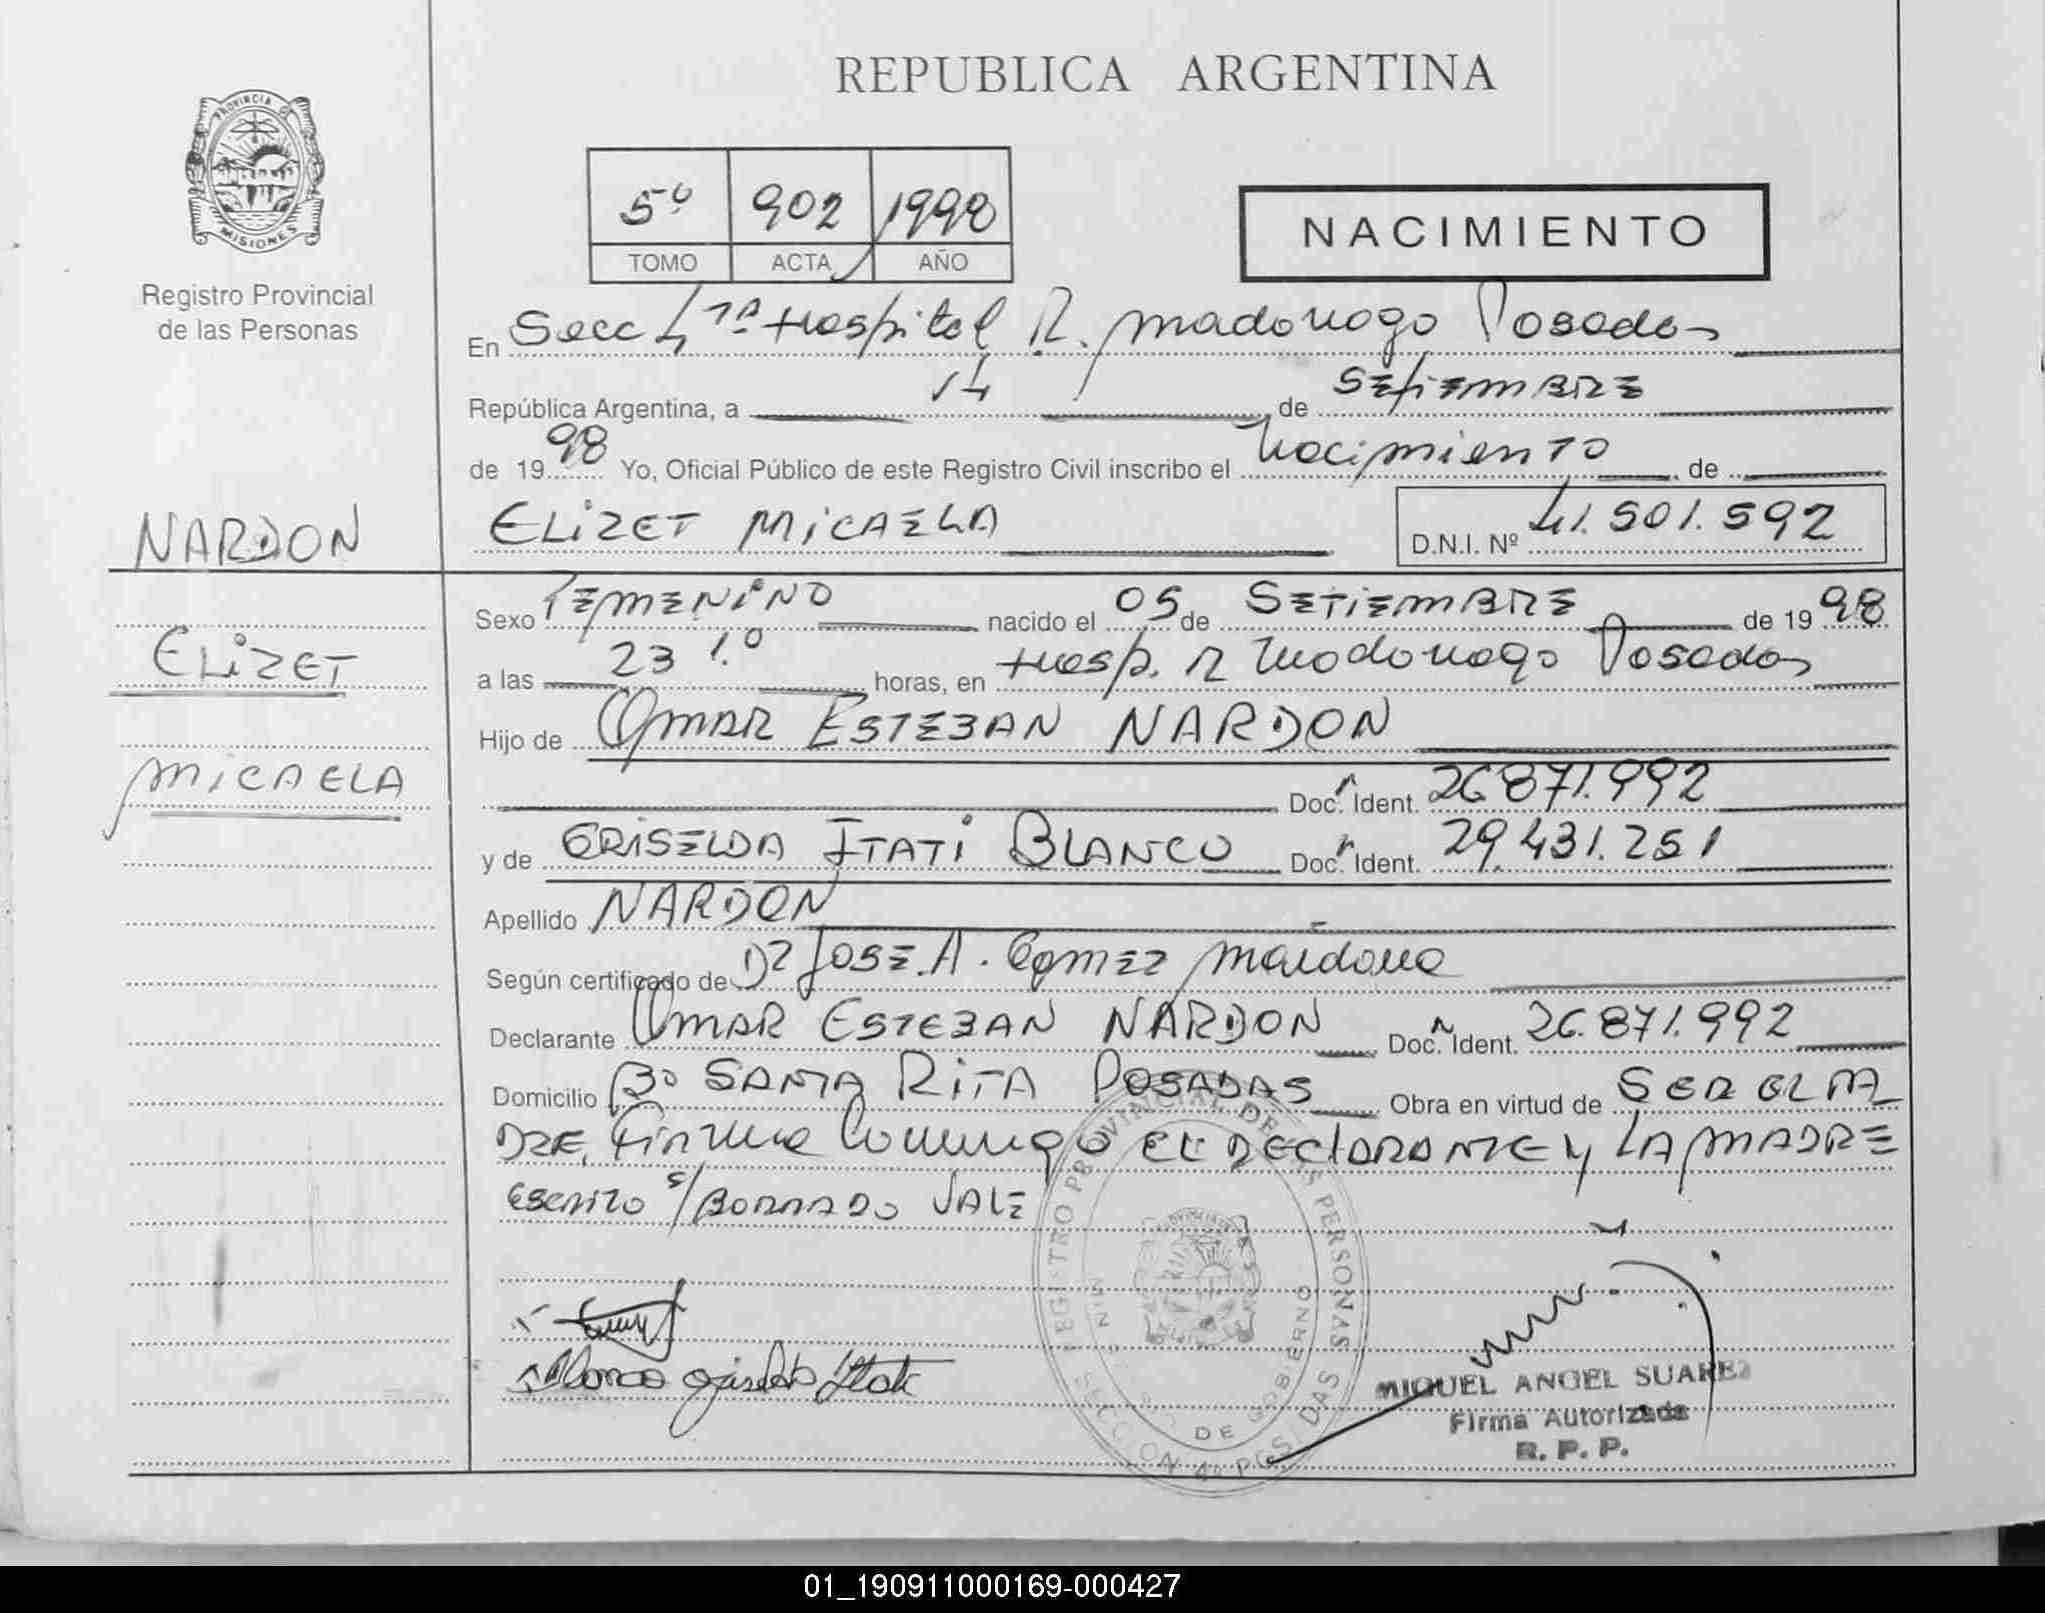 REPUBLICA ARGENTINA
PROVINCIA DE
MISIONES
Registro Provincial
de las Personas
5º 902 1998
TOMO ACTA AÑO
NACIMIENTO
En Secc 4ª Hospital R. Madonago Posadas
República Argentina, a 14 de SETIEMBRE
de 1998 Yo, Oficial Público de este Registro Civil inscribo el Nacimiento de
ELIZET MICAELA D.N.I. Nº 41.501.592
NARDON
ELIZET
MICAELA
Sexo FEMENINO nacido el 05 de SETIEMBRE de 1998
a las 23 1.º horas, en Hosp. R Madonago Posadas
Hijo de OMAR ESTEBAN NARDON
Doc. Ident. 26.871.992
y de GRISELDA ITATI BLANCO Doc. Ident. 29.431.251
Apellido NARDON
Según certificado de Dr JOSE A. Gomez Maidana
Declarante OMAR ESTEBAN NARDON Doc. Ident. 26.871.992
Domicilio Bº SANTA RITA POSADAS Obra en virtud de SER EL PA
DRE, Firma Conmigo EL DECLARANTE Y LA MADRE
ESCRITO S/BORRADO VALE
REGISTRO PROVINCIAL DE LAS PERSONAS
DE GOBIERNO
SECCION 4º POSADAS
Blanco Griselda Itati
MIGUEL ANGEL SUAREZ
Firma Autorizada
R. P. P.
01_190911000169-000427